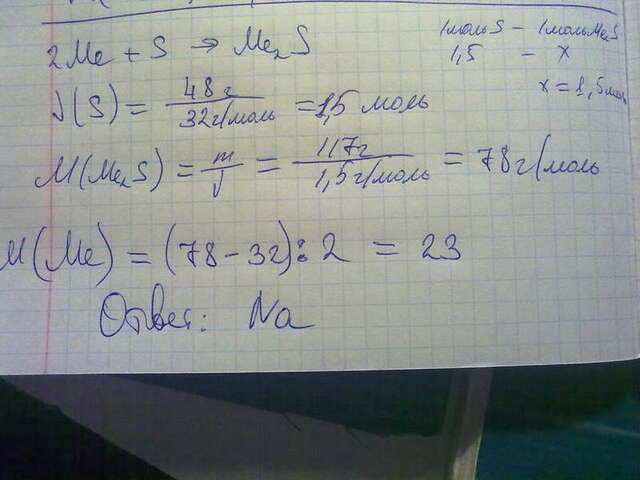 2Me + S → Me₂S
1моль S – 1моль Me₂S
1,5 – x
x = 1,5 моль
ν(S) = 48 г / 32 г/моль = 1,5 моль
M(Me₂S) = m / ν = 117г / 1,5 г/моль = 78 г/моль
M(Me) = (78 – 32) : 2 = 23
Ответ: Na